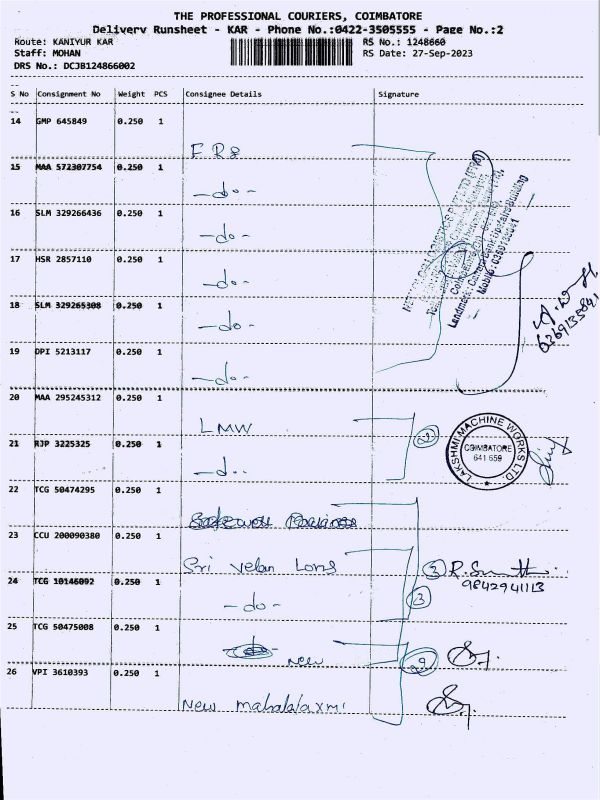 THE PROFESSIONAL COURIERS, COIMBATORE
Delivery Runsheet - KAR - Phone No.:0422-3505555 - Page No.:2
Route: KANIYUR KAR
RS No.: 1248660
Staff: MOHAN
RS Date: 27-Sep-2023
DRS No.: DCJB124866002
S No Consignment No Weight PCS Consignee Details Signature
14 GMP 645849 0.250 1
15 MAA 572307754 0.250 1
- do -
16 SLM 329266436 0.250 1
- do -
17 HSR 2857110 0.250 1
- do -
18 SLM 329265308 0.250 1
- do -
19 DPI 5213117 0.250 1
- do -
20 MAA 295245312 0.250 1
LMW
2
21 RJP 3225325 0.250 1
- do -
LAKSHMI MACHINE WORKS LTD.
COIMBATORE
641 659
22 TCG 50474295 0.250 1
23 CCU 200090380 0.250 1
Sri velan
3
9842941113
24 TCG 10146092 0.250 1
- do -
3
25 TCG 50475008 0.250 1
New
2
26 VPI 3610393 0.250 1
New mahalalaxmi